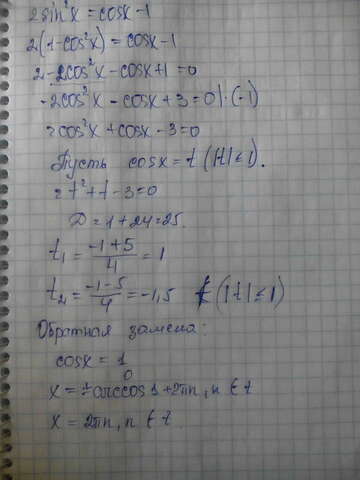 2sin²x = cosx - 1
2(1-cos²x) = cosx - 1
2 - 2cos²x - cosx + 1 = 0
-2cos²x - cosx + 3 = 0 | · (-1)
2cos²x + cosx - 3 = 0
Пусть cosx = t (|t| ≤ 1).
2t² + t - 3 = 0
D = 1 + 24 = 25.
t₁ = (-1+5)/4 = 1
t₂ = (-1-5)/4 = -1,5 ∉ (|t| ≤ 1)
Обратная замена:
cosx = 1
0
x = ± arccos 1 + 2πn, n ∈ z
x = 2πn, n ∈ z